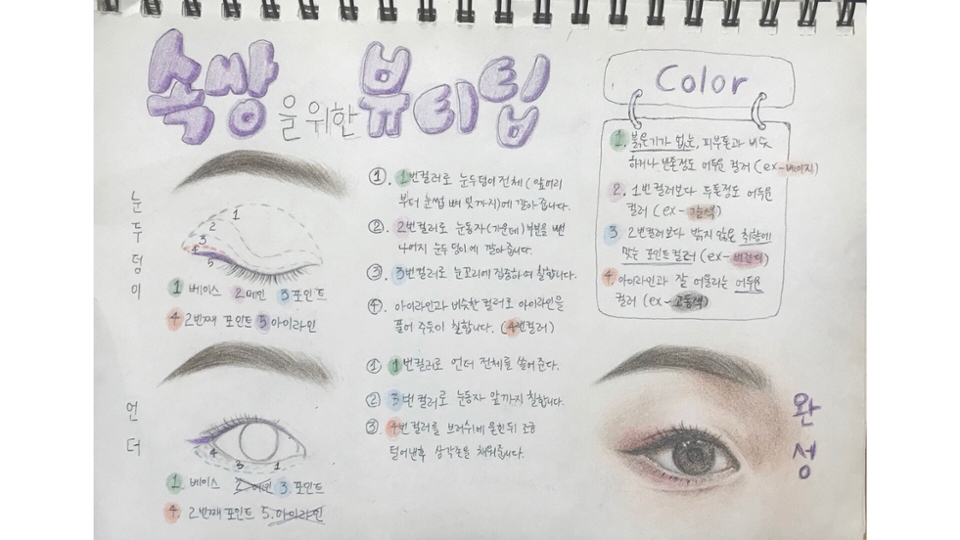 속쌍을 위한 뷰티팁
눈두덩이
1
2
3
4
5
1 베이스 2 메인 3 포인트
4 2번째 포인트 5 아이라인
①. 1번컬러로 눈두덩이 전체(앞머리
부터 눈썹 뼈 밑까지)에 깔아줍니다.
② 2번컬러로 눈동자(가운데)부분을 뺀
나머지 눈두덩이에 깔아줍니다.
③. 3번컬러로 눈꼬리에 집중하여 칠합니다.
④. 아이라인과 비슷한 컬러로 아이라인을
풀어 주듯이 칠합니다. (4번컬러)
언더
4
3
1
1. 베이스 2 메인 3 포인트
4. 2번째 포인트 5.아이라인
① 1번컬러로 언더 전체를 쓸어준다.
② 3번 컬러로 눈동자 앞까지 칠합니다.
③ 4번 컬러를 브러쉬에 묻힌뒤 조금
털어낸후 삼각존을 채워줍니다.
Color
1. 붉은기가 없는, 피부톤과 비슷
하거나 반톤정도 어두운 컬러 (ex-베이지)
2. 1번컬러보다 두톤정도 어두운
컬러 (ex-갈색)
3 2번컬러보다 밝지 않은 취향에
맞는 포인트컬러 (ex-)
4. 아이라인과 잘 어울리는 어두운
컬러 (ex-고동색)
완성